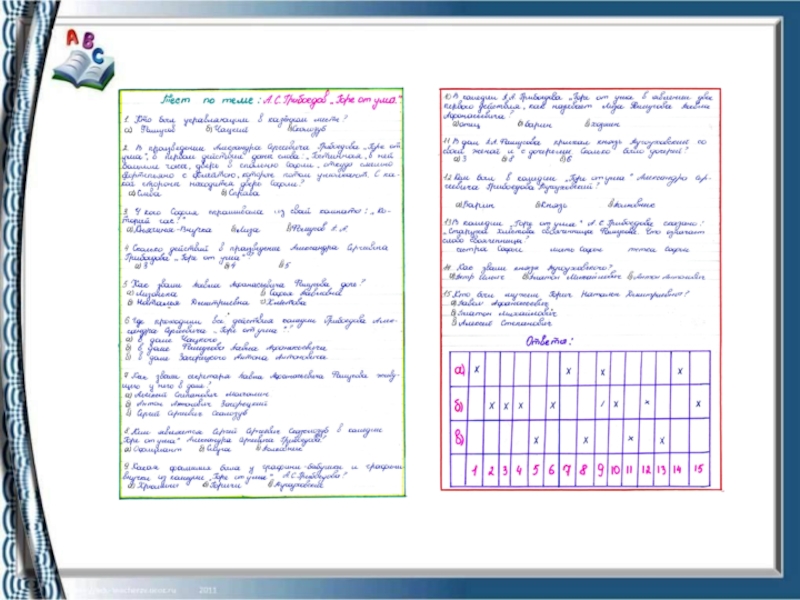 A B C
Тест по теме: А.С. Грибоедов „Горе от ума"
1. Кто был управляющим в казённом месте?
а) Фамусов б) Чацкий в) Скалозуб
2. В произведении Александра Сергеевича Грибоедова „Горе от
ума", в первом действии даны слова: „Гостинная, в ней
большие часы, дверь в спальню Софьи, откуда слышно
фортепьяно с флейтою, которые потом умолкают. С ка-
кой стороны находится дверь Софьи?
а) Слева б) Справа
3. У кого Софья спрашивала из свой комнаты: „Ко-
торый час?"
а) Княгиня-Внучка б) Лиза в) Фамусов П.А.
4. Сколько действий в произведение Александра Сергеевича
Грибоедова „Горе от ума"?
а) 3 б) 4 в) 5
5. Как звали Павла Афанасьевича Фамусова дочь?
а) Лизонька б) Софья Павловна
в) Наталья Дмитриевна г) Хлёстова
6. Где проходили все действия комедии Грибоедова Алек-
сандра Сергеевича „Горе от ума"?
а) в доме Чацкого
б) в доме Фамусова Павла Афанасьевича
в) в доме Загорецкого Антона Антоновича
7. Как звали секретаря Павла Афанасьевича Фамусова живу-
щего у него в доме?
а) Алексей Степанович Молчалин
б) Антон Антонович Загорецкий
в) Сергей Сергеевич Скалозуб
8. Кем является Сергей Сергеевич Скалозуб в комедии
„Горе от ума" Александра Сергеевича Грибоедова?
а) Официант б) Слуга в) Полковник
9. Какая фамилия была у графини-бабушки и графини
внучки из комедии „Горе от ума" А.С. Грибоедова?
а) Хрюмины б) Горичи в) Тугоуховские
10. В комедии А.С. Грибоедова „Горе от ума в явлении два
первого действия, как называет Лиза Фамусова Павла
Афанасьевича?
а) отец б) барин в) хозяин
11. В дом П.А. Фамусова приехал князь Тугоуховский со
своей женой и с дочерьми. Сколько было дочерей?
а) 3 б) 8 в) 6
12. Кем был в комедии „Горе от ума" Александра Сер-
геевича Грибоедова Тугоуховский?
а) Барин б) Князь в) Полковник
13. В комедии „Горе от ума" А.С. Грибоедова сказано:
„Старуха Хлёстова свояченица Фамусова. Что означает
слово свояченица?
сестра Софьи мать Софьи тётя Софьи
14. Как звали князя Тугоуховского?
а) Пётр Ильич б) Платон Михайлович в) Антон Антонович
15. Кто был мужем Горич Натальи Дмитриевны?
а) Павел Афанасьевич
б) Платон Михайлович
в) Алексей Степанович
Ответы:
а) х х х х
б) х х х х / х х х
в) х х х х
1 2 3 4 5 6 7 8 9 10 11 12 13 14 15
2011